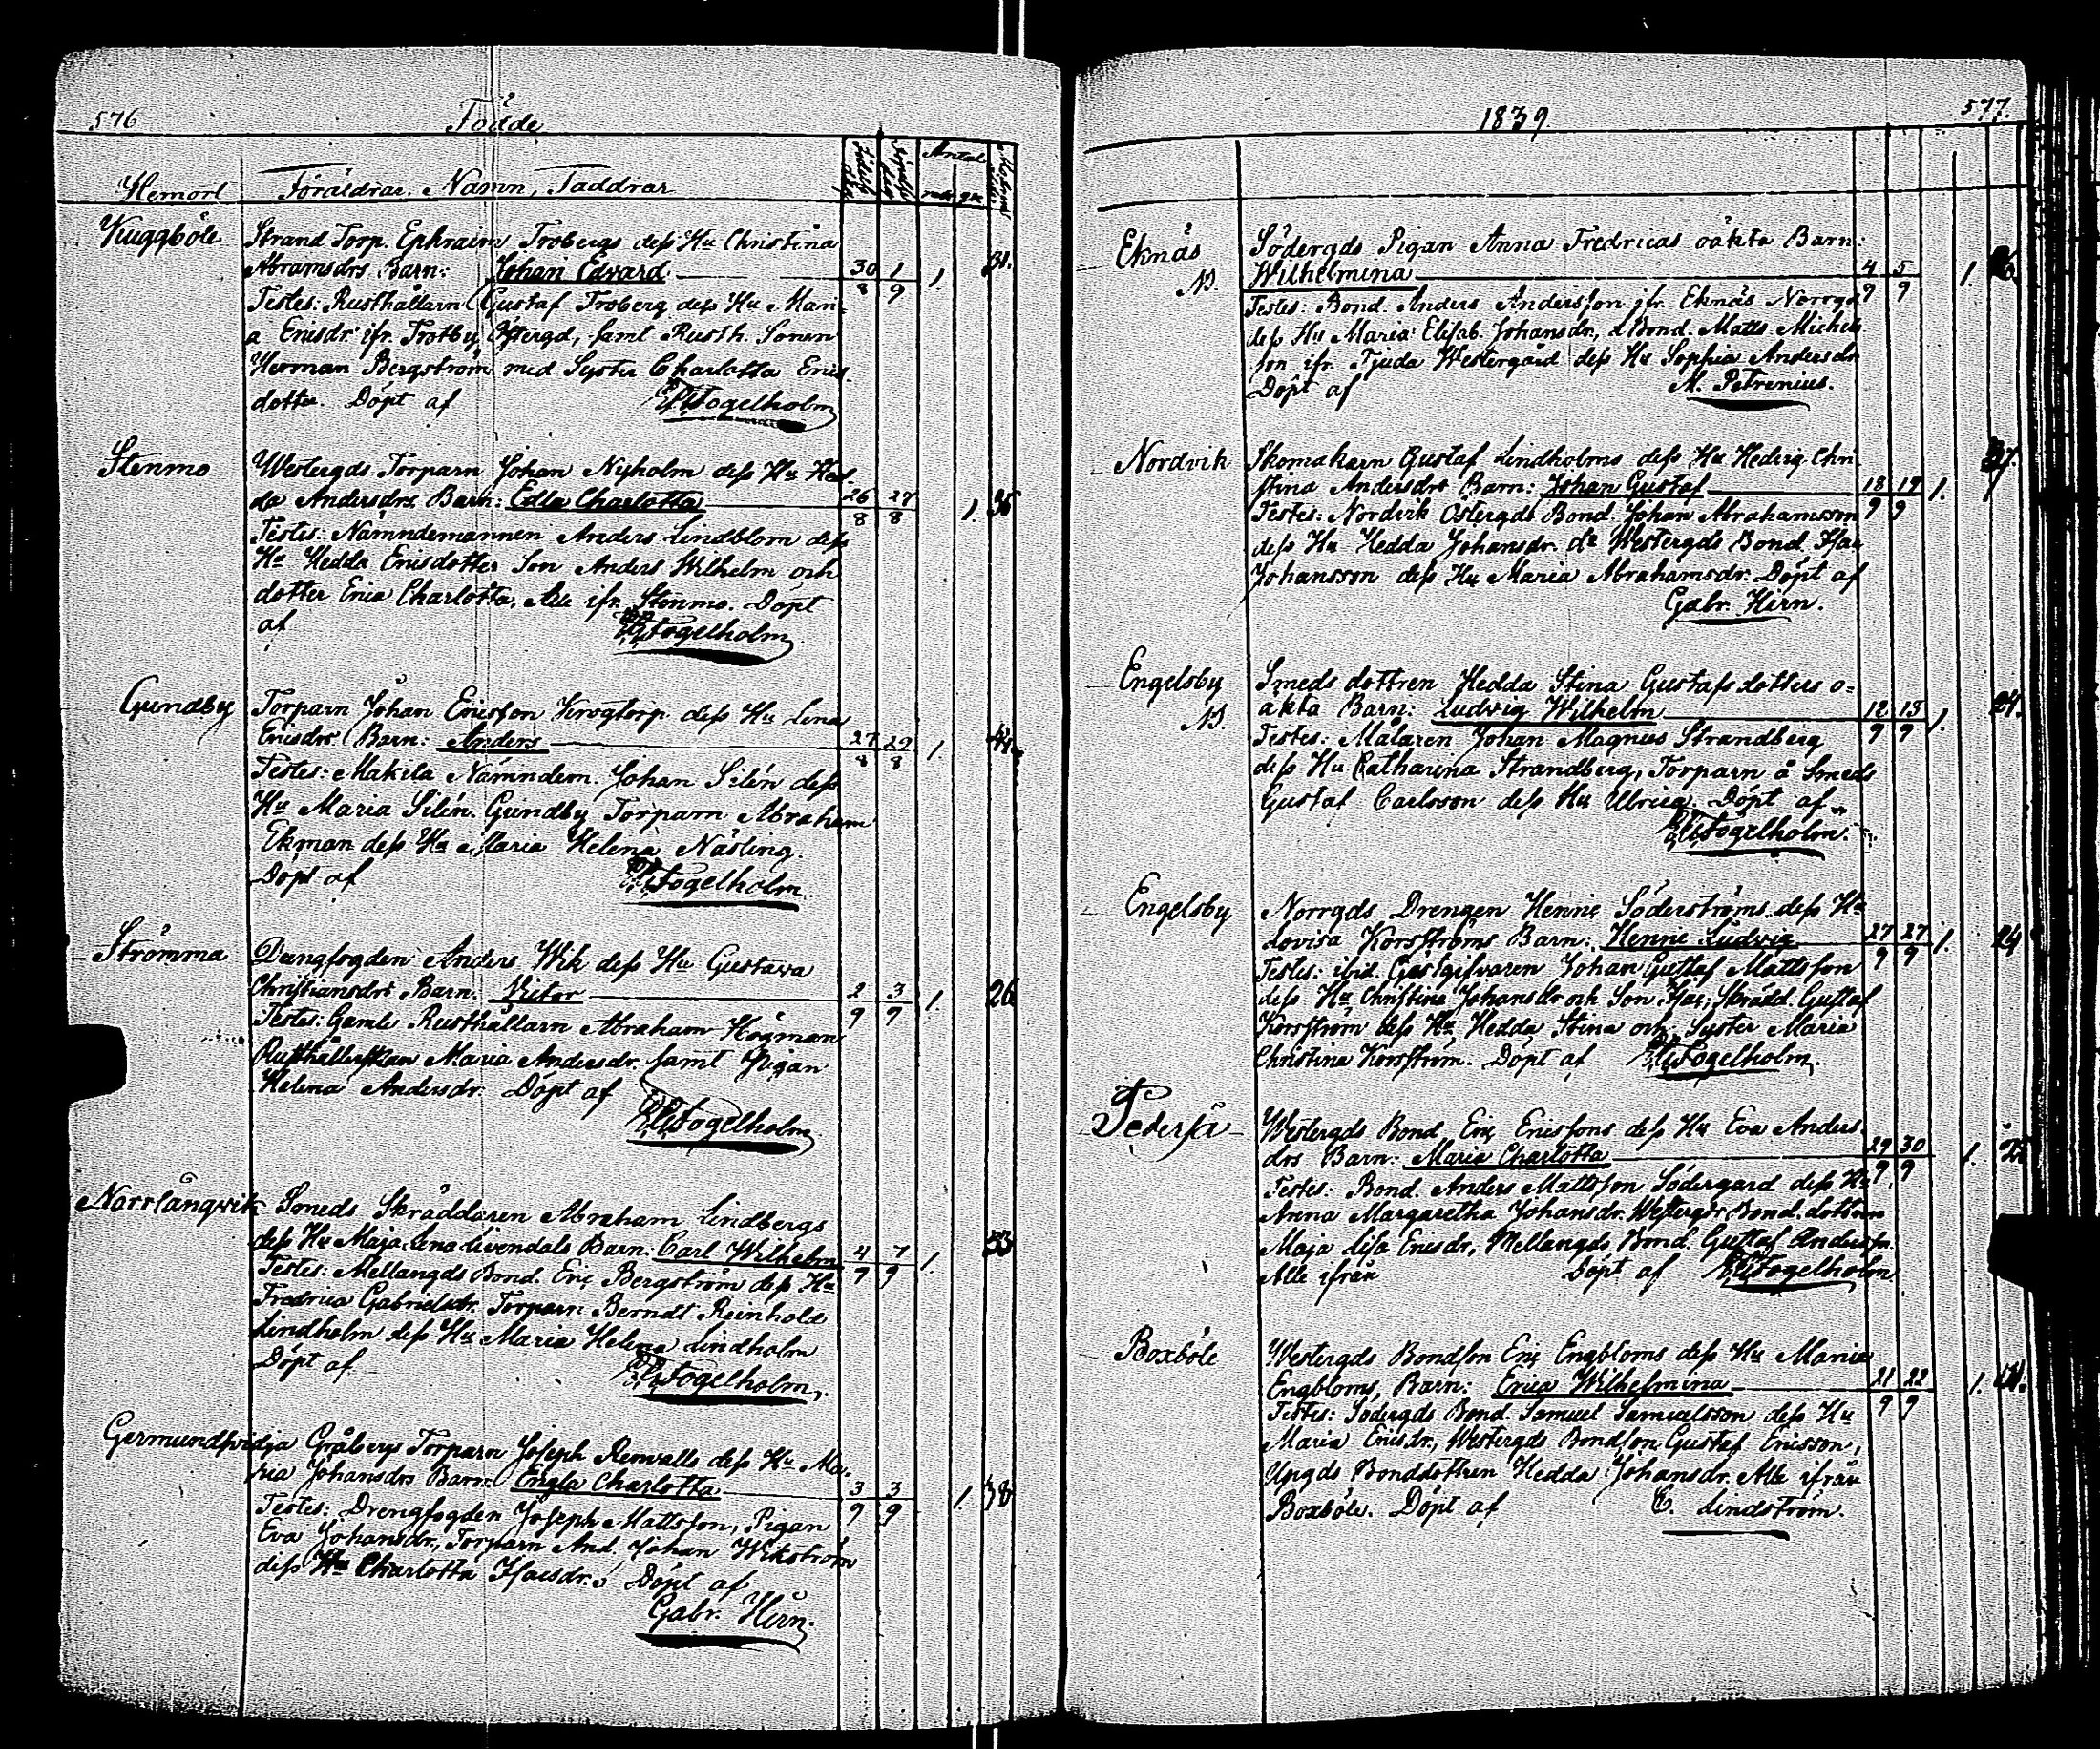 576
Födde
Hemort Föräldrar. Namn, Faddrar
Födelse dag Christn. dag Antal mk qk Modrens ålder
Kuggböle Strand Torp. Ephraim Trobergs dess Hu Christina
Abramsdrs Barn: Johan Edvard 30/8 1/9 1. 31.
Testes: Rusthållarn Gustaf Troberg dess Hu Mari-
a Ericsdr. ifr. Trotby Östergd, samt Rusth. Sonen
Herman Bergström med Syster Charlotta Erics
dotter. Döpt af Fogelholm
Stenmo Westergds Torparn Johan Nyholm dess Hu Hed
da Andersdrs Barn: Edla Charlotta 26/8 27/8 1. 35
Testes: Nämndemannen Anders Lindblom dess
Hu Hedda Ericsdotter Son Anders Wilhelm och
dotter Erica Charlotta. Alla ifr. Stenmo. Döpt
af Fogelholm
Gundby Torparn Johan Ericsson Krogtorp dess Hu Lena
Ericsdrs Barn: Anders 27/8 29/8 1. 44.
Testes: Makila Nämndem. Johan Silén dess
Hu Maria Silén. Gundby Torparn Abraham
Ekman dess Hu Maria Helena Näsling.
Döpt af Fogelholm
Strömma Drengfogden Anders Wik dess Hu Gustava
Christiansdrs Barn. Victor 2/9 3/9 1. 26
Testes: Gamle Rusthållarn Abraham Högman
Rusthållerskan Maria Andersdr. samt Pigan
Helena Andersdr. Döpt af
Fogelholm
Norrlångvik Smeds Skräddaren Abraham Lindbergs
dess Hu Maja Lena Livendals Barn: Carl Wilhelm 4/9 7/9 1. 33
Testes: Mellangds Bond. Eric Bergström dess Hu
Fredrica Gabrielsdr. Torparn Berndt Reinhold
Lindholm dess Hu Maria Helena Lindholm
Döpt af Fogelholm
Germundsvidja Gråbergs Torparn Joseph Renvalls dess Hu Ma-
ria Johansdrs Barn: Engla Charlotta 3/9 3/9 1. 38
Testes: Drengfogden Joseph Mattsson, Pigan
Eva Johansdr, Torparn And. Johan Wikström
dess Hu Charlotta Isacsdr. Döpt af
Gabr. Hirn.
1839.
577.
Eknäs Södergds Pigan Anna Fredricas oäkta Barn:
N. Wilhelmina 4/9 5/9 1.
Testes: Bond. Anders Andersson ifr. Eknäs Norrgd
dess Hu Maria Elisab. Johansdr, Bond. Matts Michels
son ifr. Tjuda Westergård dess Hu Sophia Andersdr
Döpt af M. Petrenius.
Nordvik Skomakarn Gustaf Lindholms dess Hu Hedvig Chri
stina Andersdrs Barn: Johan Gustaf 18/9 19/9 1. 37.
Testes: Nordvik Östergds Bond. Johan Abrahamsson
dess Hu Hedda Johansdr. do Westergds Bond. Isac
Johansson dess Hu Maria Abrahamsdr. Döpt af
Gabr. Hirn.
Engelsby Smeds dottren Hedda Stina Gustafsdotters o-
N. äkta Barn: Ludvig Wilhelm 12/9 13/9 1. 24.
Testes: Målaren Johan Magnus Strandberg
dess Hu Catharina Strandberg, Torparn å Smeds
Gustaf Carlsson dess Hu Ulrica. Döpt af
Fogelholm.
Engelsby Norrgds Drengen Henric Söderströms dess Hu
Lovisa Korsströms Barn: Henric Ludvig 27/9 27/9 1. 24
Testes: ibid. Gästgifvaren Johan Gustaf Mattsson
dess Hu Christina Johansdr och Son Isac, Skrädd. Gustaf
Korsström dess Hu Hedda Stina och Syster Maria
Christina Korsström. Döpt af Fogelholm.
Pederså Westergds Bond. Eric Ericssons dess Hu Eva Anders
drs Barn: Maria Charlotta 29/9 30/9 1.
Testes: Bond. Anders Mattsson Södergård dess Hu
Anna Margaretha Johansdr. Westergds Bond. dottren
Maja Lisa Ericsdr, Mellangds Bond. Gustaf Andersson.
Alle ifrån Döpt af Fogelholm
Boxböle Westergds Bondson Eric Engbloms dess Hu Maria
Engbloms, Barn: Erica Wilhelmina 21/9 22/9 1.
Testes: Södergds Bond. Samuel Samuelsson dess Hu
Maria Ericsdr, Westergds Bondson Gustaf Ericsson,
Upgds Bonddottren Hedda Johansdr. Alle ifrån
Boxböle. Döpt af C. Lindström.